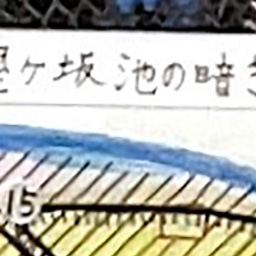 ケ坂池の暗
15